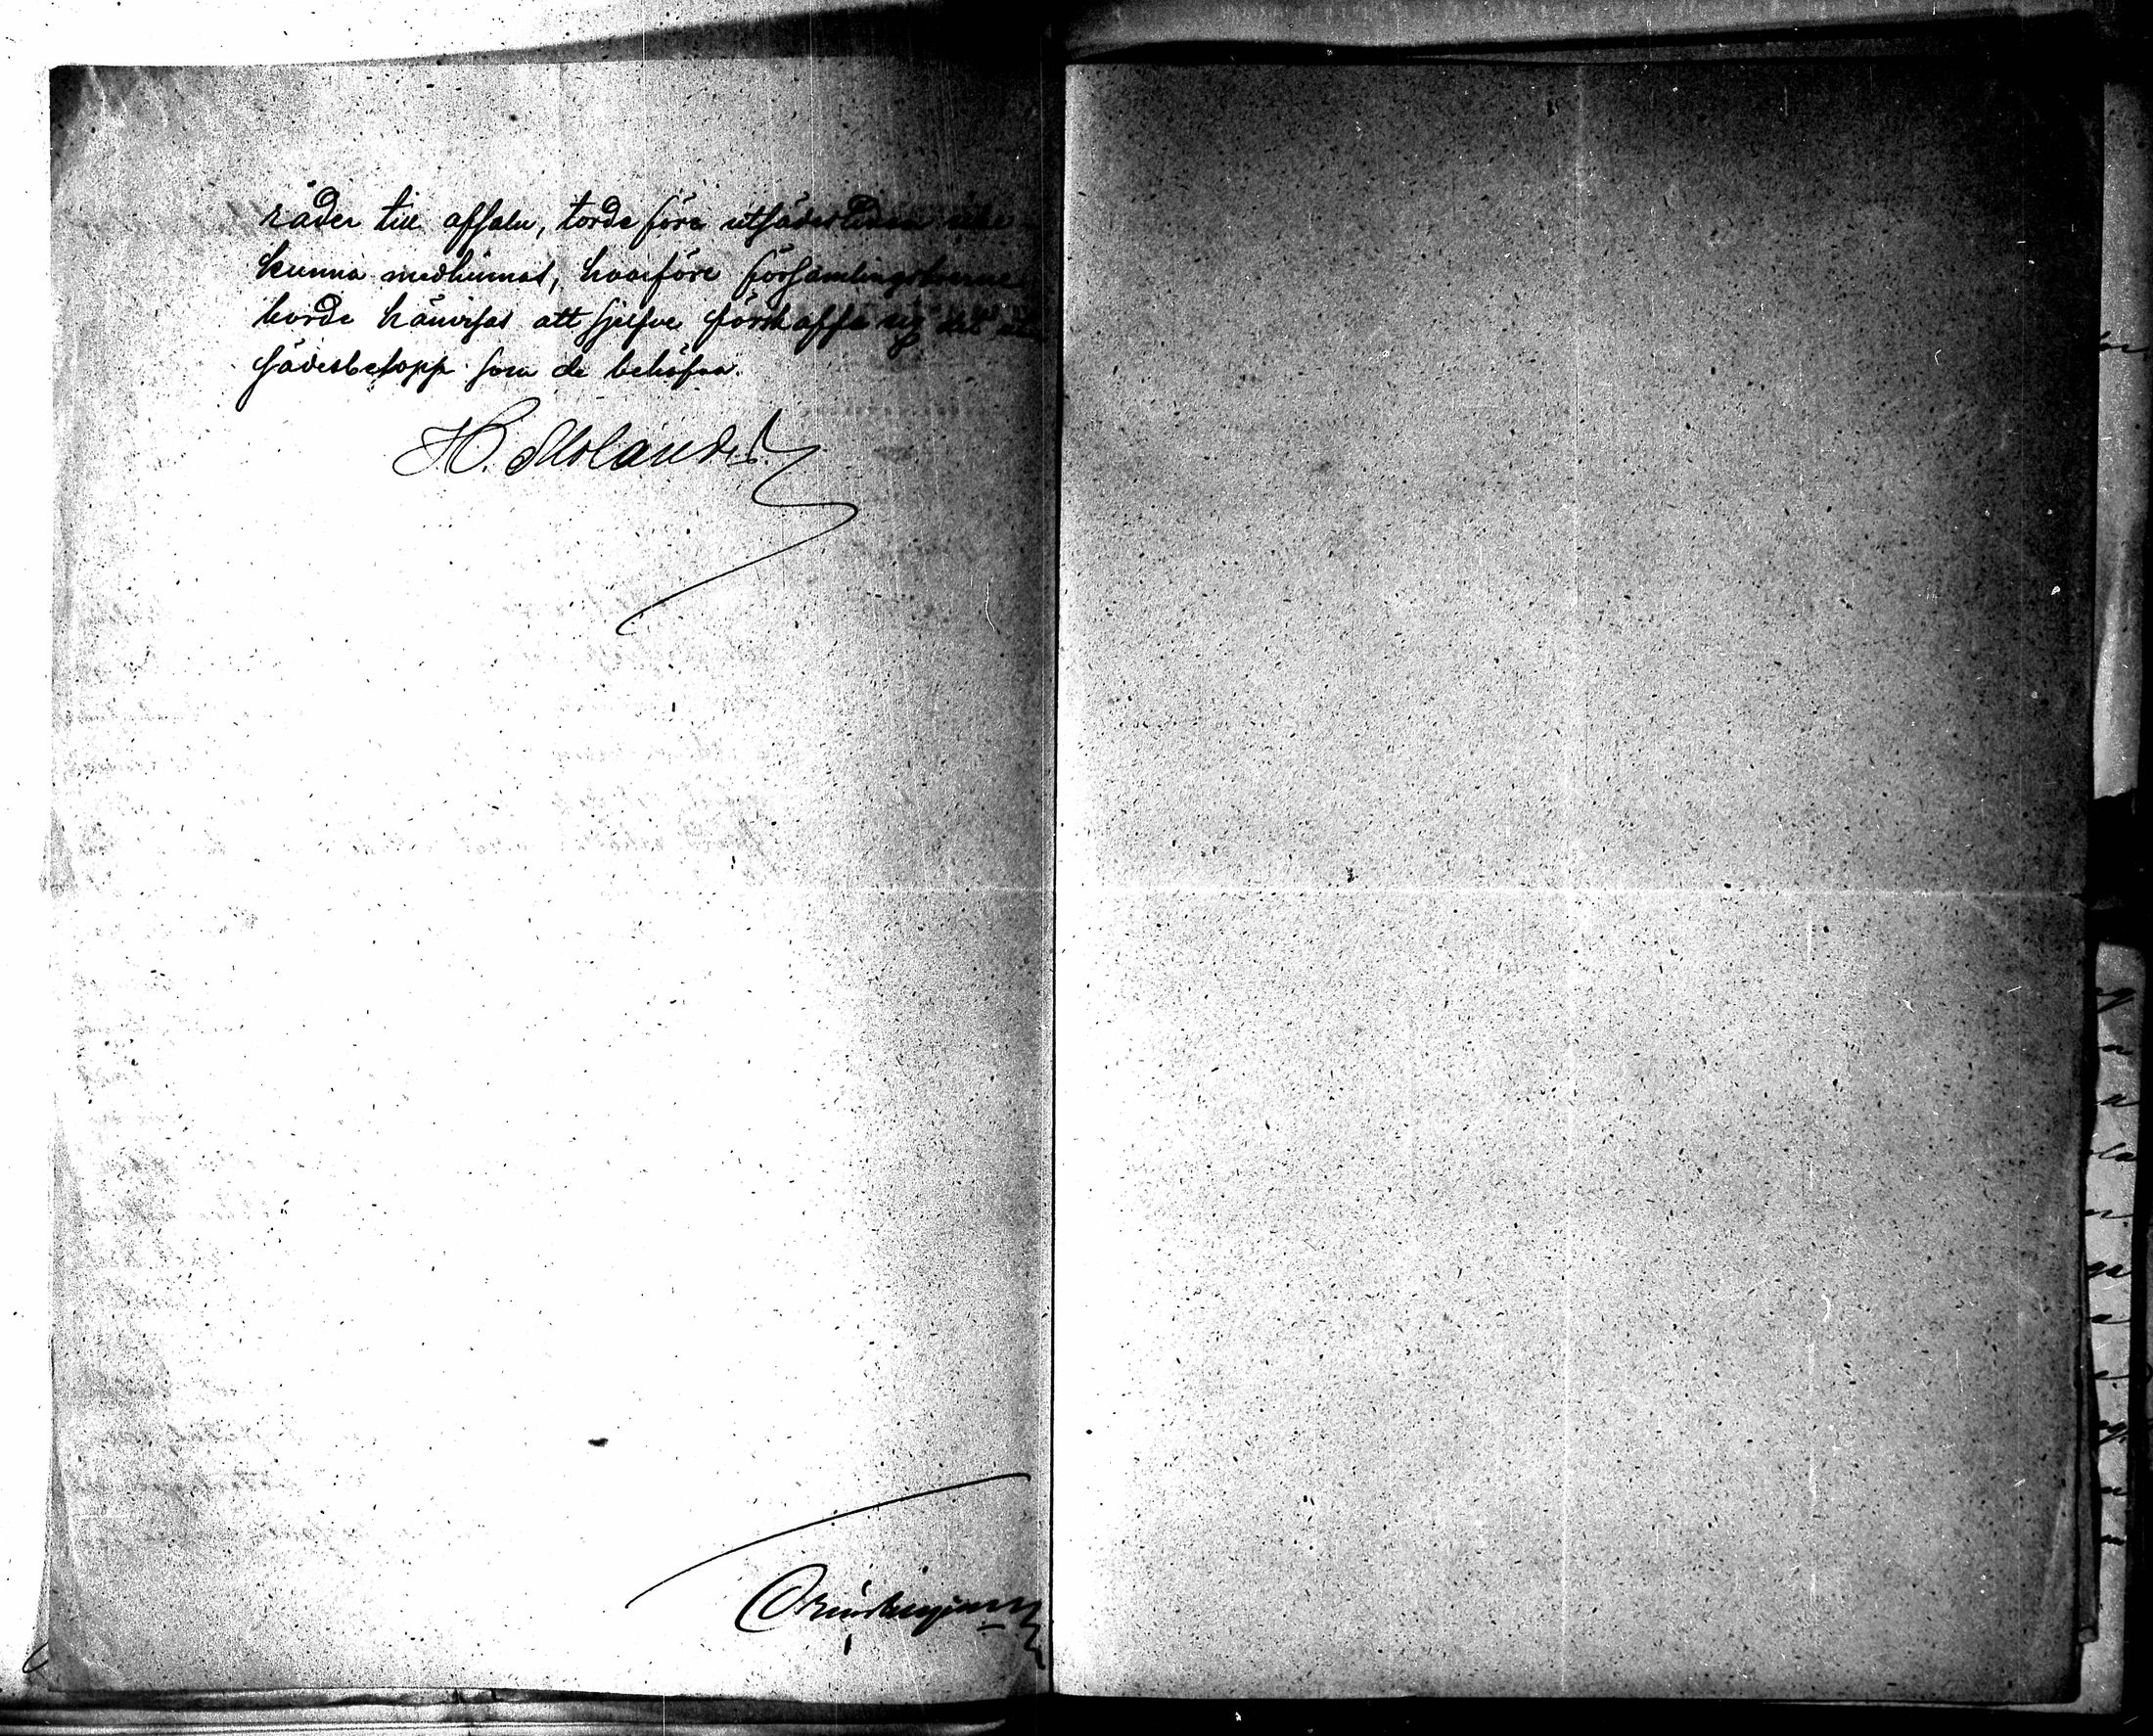 råder till afsalu, torde före utsädestiden icke
kunna medhinnas, hvarföre församlingsboerne
borde hänvisas att sjelfve förskaffa sig det ut
sädesbelopp som de behöfva.
H. Molander